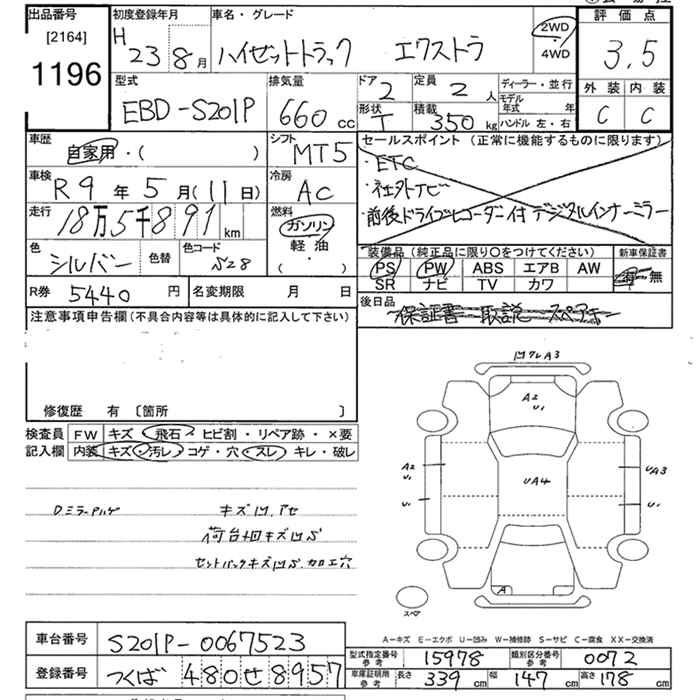 出品番号
[2164]
1196
初度登録年月
H 23 8月
車名・グレード
ハイゼットトラック エクストラ
2WD
・
4WD
評価点
3.5
外装 内装
C C
型式
EBD-S201P
排気量
660 cc
ドア
2
定員
2 人
形状
T
積載
350 kg
ディーラー・並行
モデル年式 年
ハンドル 左・右
車歴
自家用・( )
シフト
MT5
車検
R9年5月(11日)
冷房
AC
走行
18万5千891km
燃料
ガソリン
軽油
( )
色
シルバー
色替
色コード
S28
セールスポイント(正常に機能するものに限ります)
ETC
・社外ナビ
・前後ドライブレコーダー付デジタルインナーミラー
装備品(純正品に限り〇をつけてください)
新車保証書
PS PW ABS エアB AW
SR ナビ TV カワ
有・無
R券 5440円
名変期限 月 日
後日品
保証書 取説 スペアキー
注意事項申告欄(不具合内容等は具体的に記入して下さい)
修復歴 有 〔箇所 〕
検査員記入欄
FW キズ・飛石・ヒビ割・リペア跡・×要
内装 キズ・汚レ・コゲ・穴・スレ・キレ・破レ
D.ミラーハゲ
キズ凹.アセ
荷台回キズ凹S
セットバックキズ凹S.加工穴
凹クレA3
A2
U1
A2
U1
UA4
UA3
U1
A
スペア
A-キズ E-エクボ U-凹み W-補修跡 S-サビ C-腐食 XX-交換済
車台番号
S201P-0067523
登録番号
つくば 480 せ 8957
型式指定番号
参考
15978
類別区分番号
参考
0072
車庫証明用
参考
長さ 339 cm
幅 147 cm
高さ 178 cm